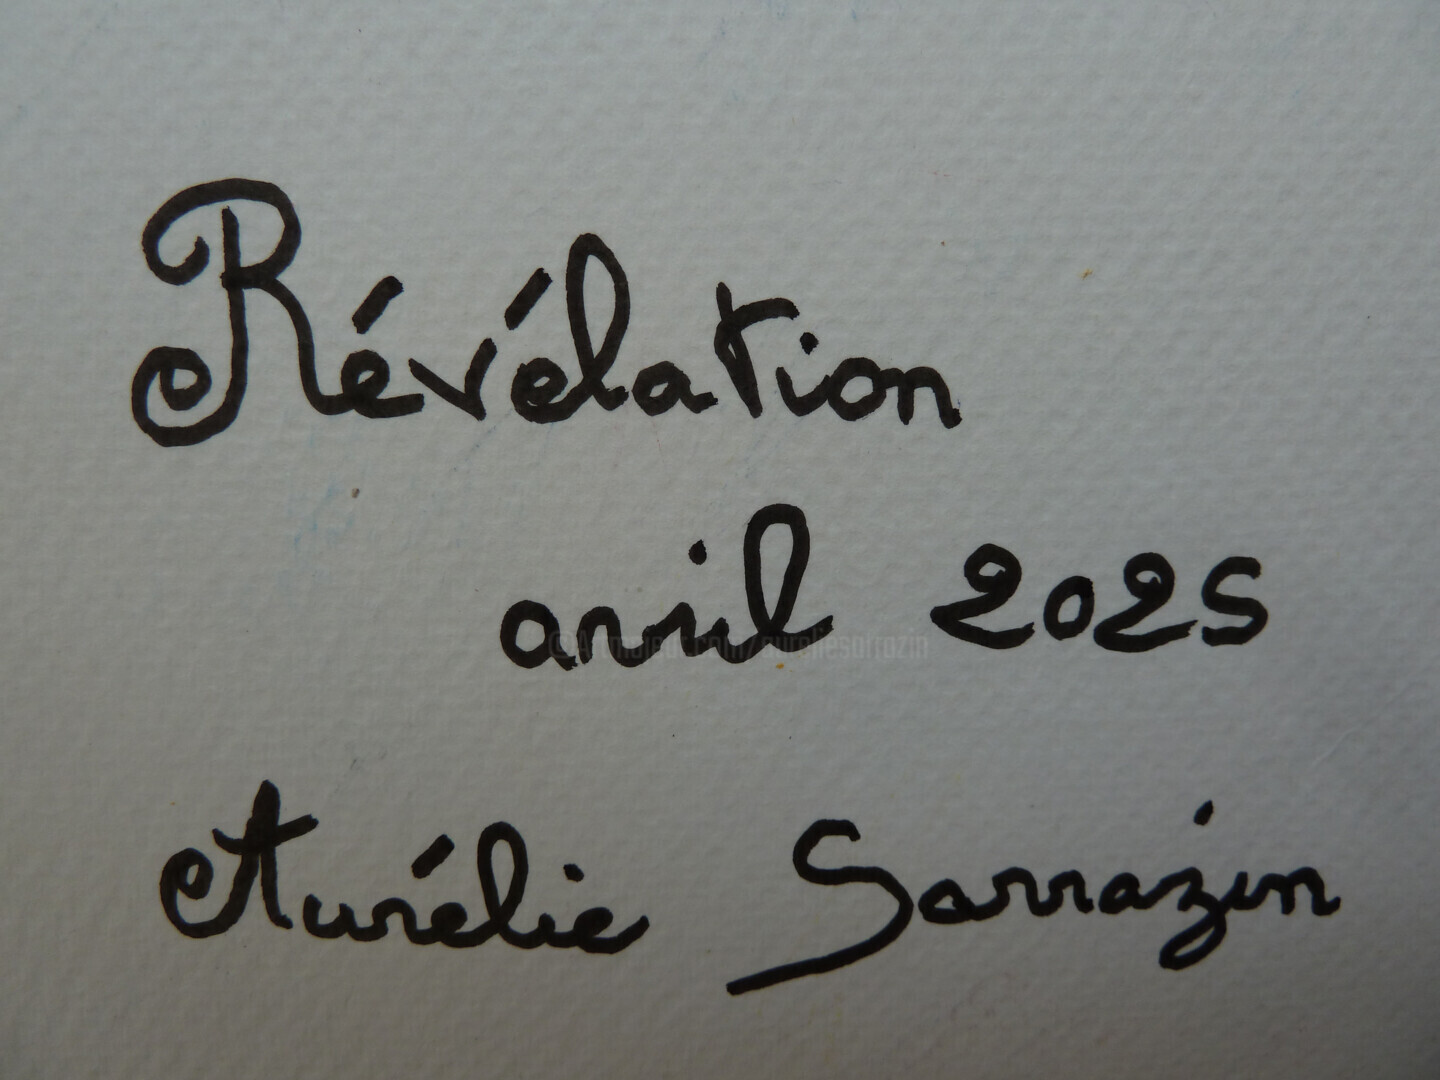 Révélation
avril 2025
©Artmajeur.com/aureliesarrazin
Aurélie Sarrazin